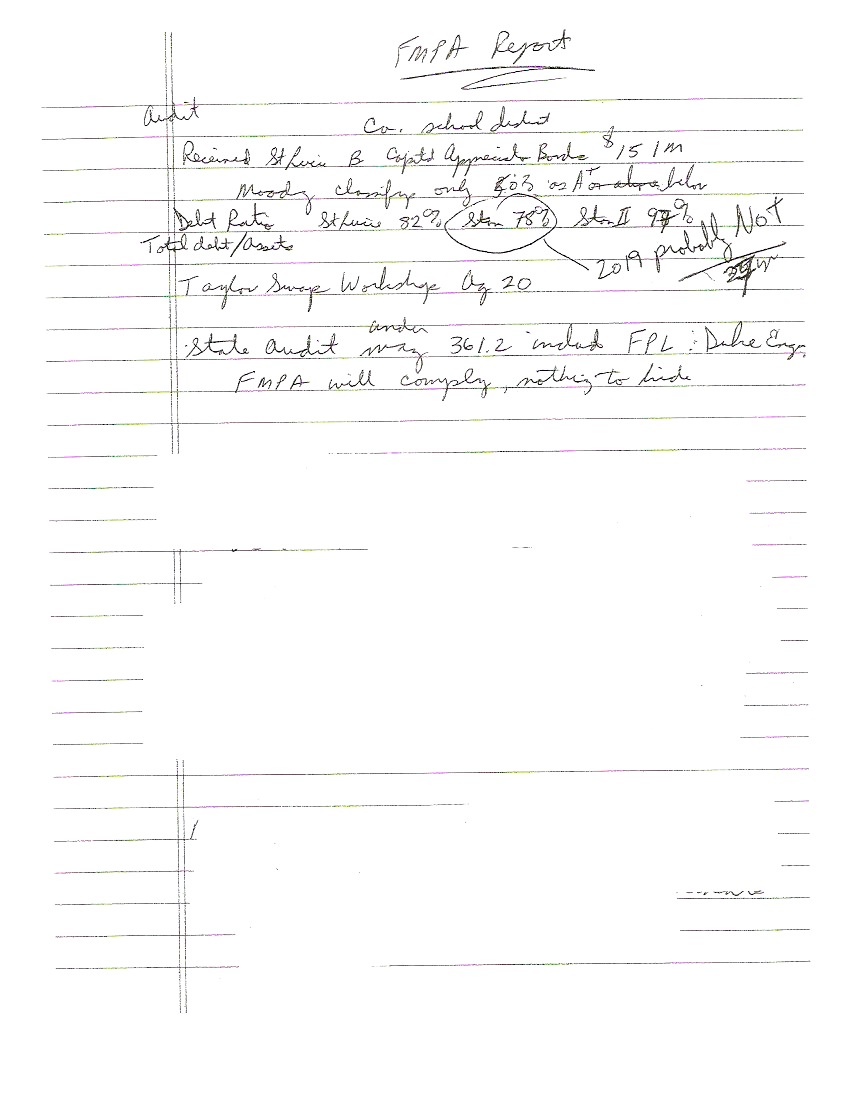 FMPA Report
Audit
Co. school district
Received St Lucie B Capital Appreciation Bonds $151M
Moody classify only 80% as A+ or above below
Debt Ratio St Lucie 82% Stan 78% Stan II 97%
Total debt/Assets
2019 probably NOT
Taylor Swap Workshop Ag 20
under
State Audit may 361.2 includ FPL : Duke Engy
FMPA will comply, nothing to hide